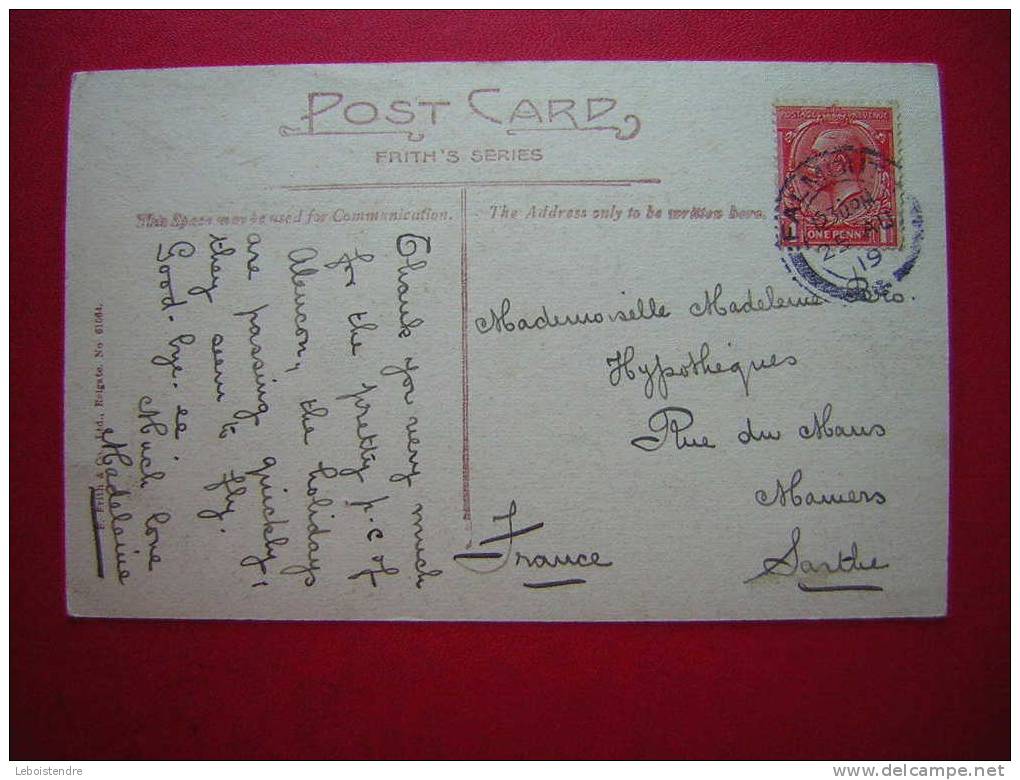 POST CARD
FRITH'S SERIES
This Space may be used for Communication.
The Address only to be written here.
POSTAGE REVENUE
ONE PENNY
FALMOUTH
5 30 PM
25
19
Thank you very much
for the pretty p.c of
Alencon, the holidays
are passing quickly,
they seem to fly.
Good-bye. ee
Much love
Madeleine
Mademoiselle Madeleine
Hypothèques
Rue du Mans
Mamers
Sarthe
France
F. Frith & Co., Ltd., Reigate. No 61064.
Leboistendre
delcampe.net